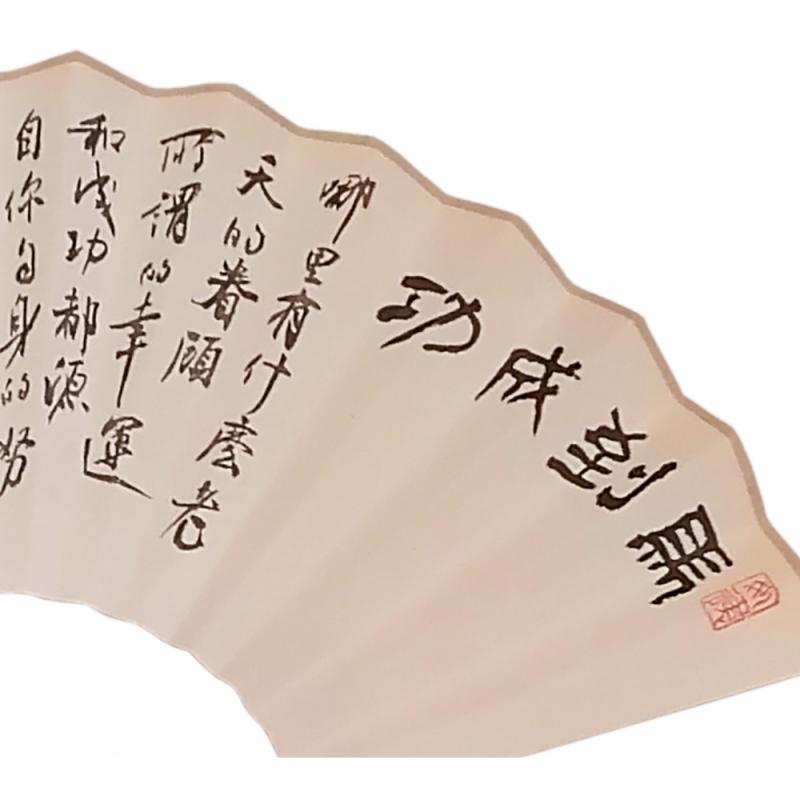 馬到成功
哪里有什麼老
天的眷顧
所謂的幸運
和成功都源
自你自身的努